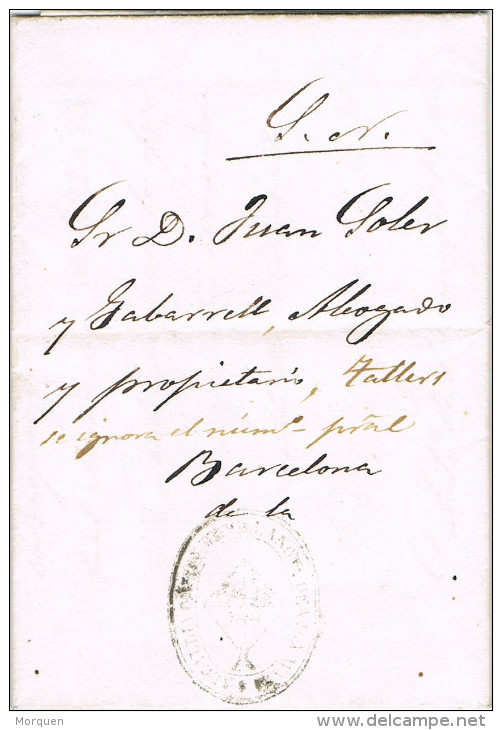 S. N.
Sr D. Juan Soler
y Gabarrell, Abogado
y propietario, Tallers
se ignora el númº pral
Barcelona
de la
Morquen
www.delcampe.net